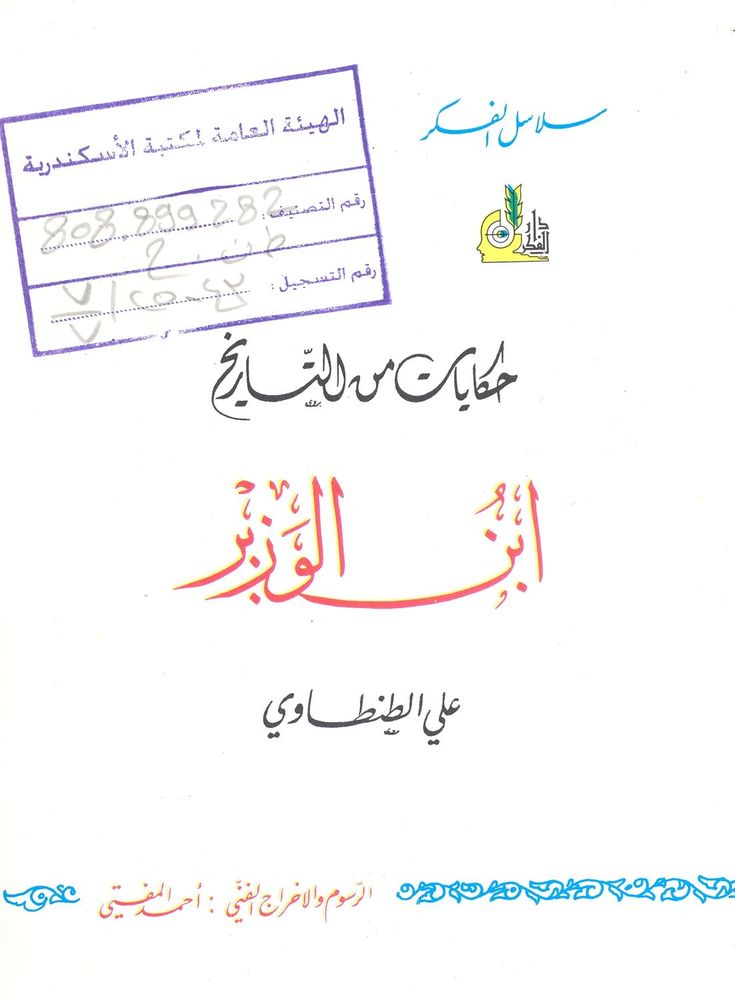 سلاسل الفكر
دار الفكر
الهيئة العامة لمكتبة الأسكندرية
رقم التصنيف: 808.899282
رقم التسجيل:
حكايات من التّاريخ
ابنُ الوَزير
علي الطنطاوي
الرّسوم والاخراج الفنّي : أحمد المفتي